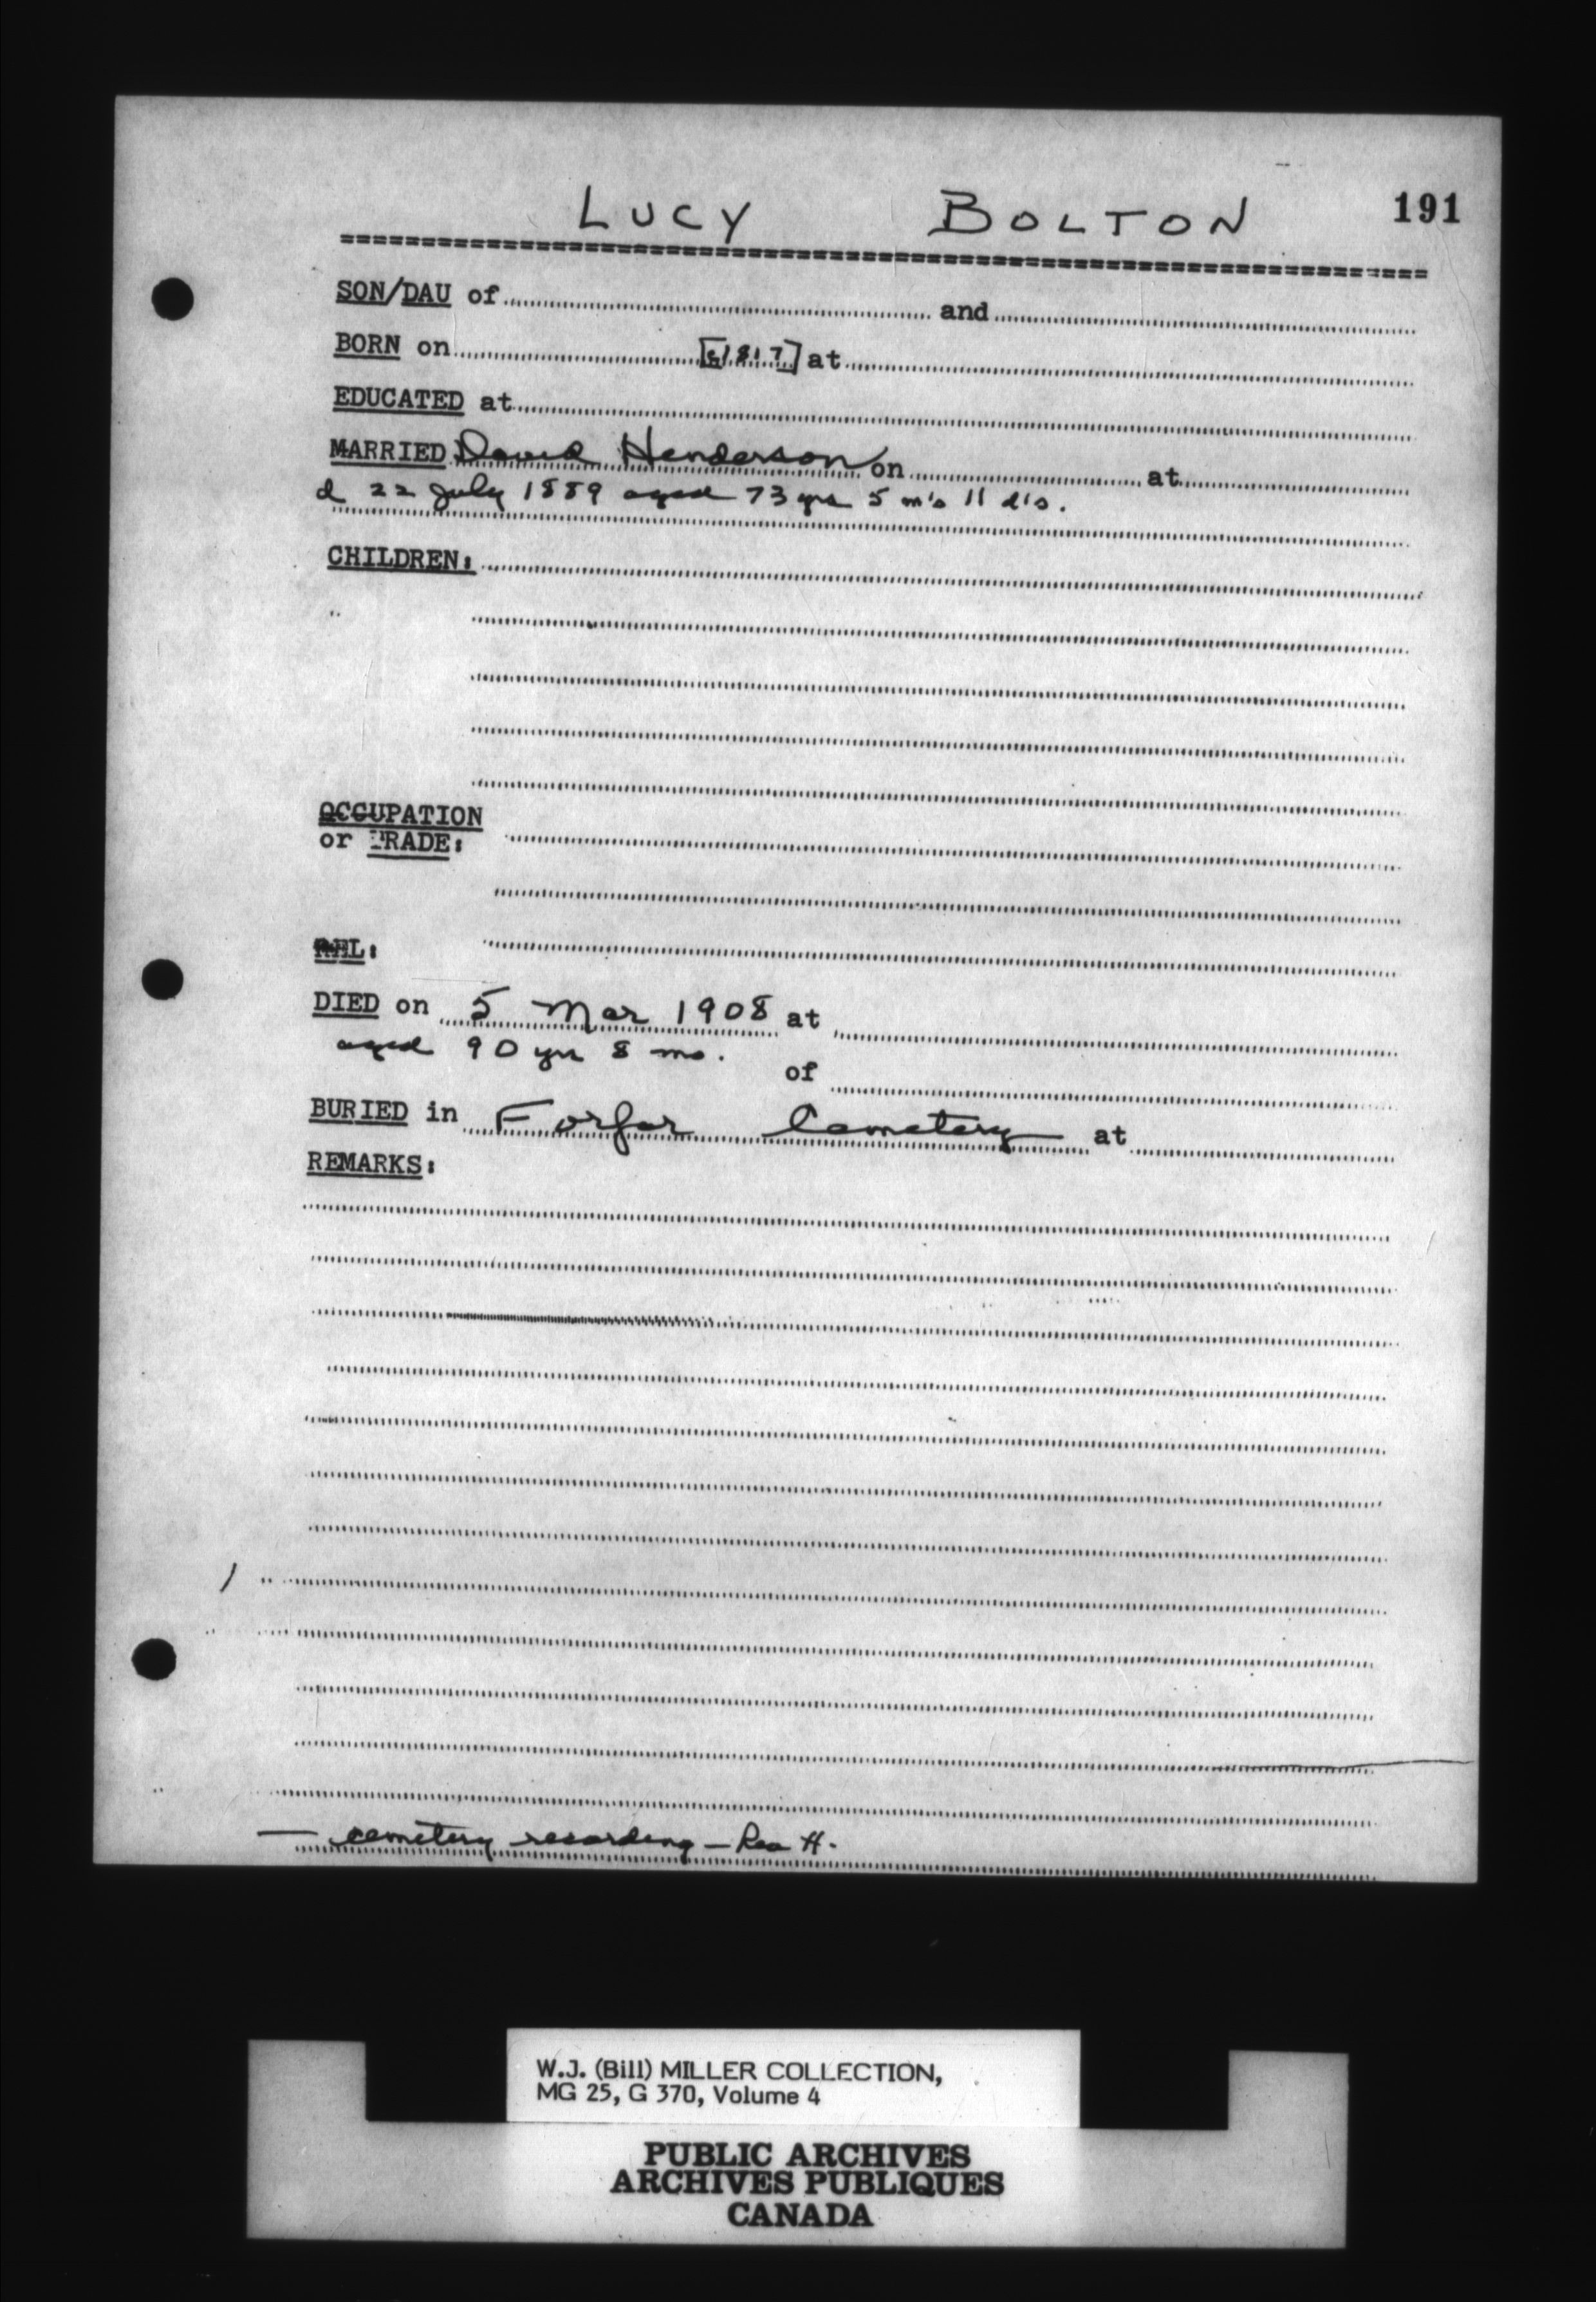 LUCY BOLTON 191
SON/DAU of and
BORN on [c1817] at
EDUCATED at
MARRIED David Henderson on at
d 22 July 1889 aged 73 yrs 5 m's 11 d's.
CHILDREN:
OCCUPATION
or TRADE:
REL:
DIED on 5 Mar 1908 at
aged 90 yrs 8 mo.
of
BURIED in Forfar Cemetery at
REMARKS:
— cemetery recording – Rea H.
W.J. (Bill) MILLER COLLECTION,
MG 25, G 370, Volume 4
PUBLIC ARCHIVES
ARCHIVES PUBLIQUES
CANADA